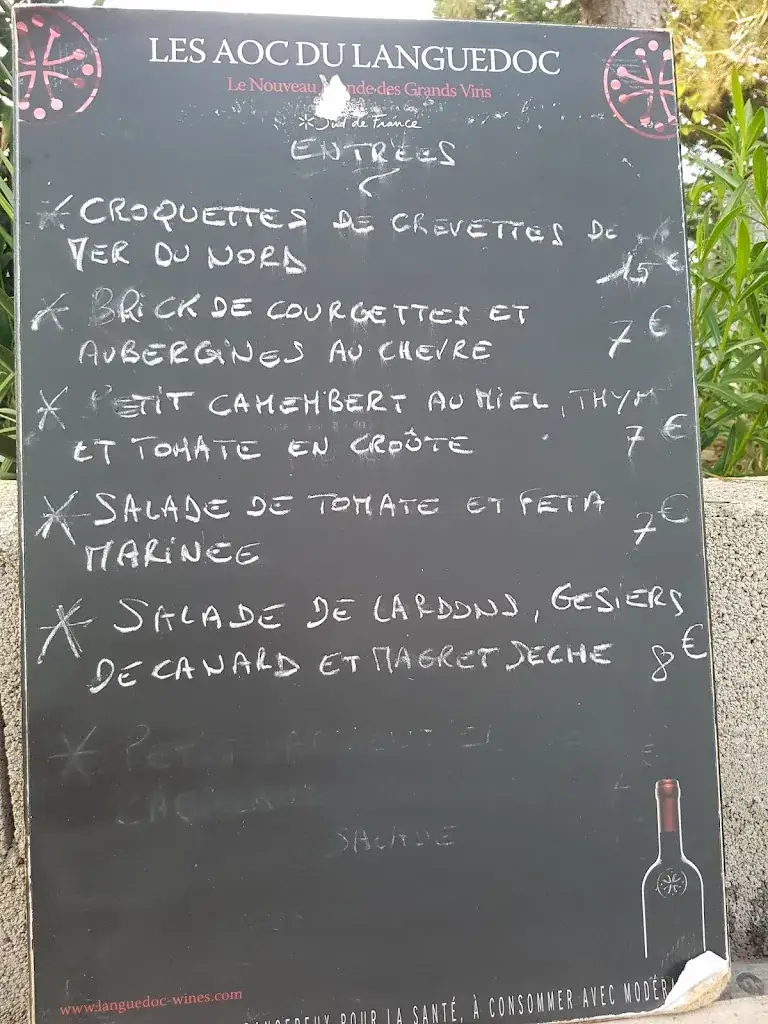 LES AOC DU LANGUEDOC
Le Nouveau des Grands Vins
Sud de France
ENTREES
* CROQUETTES DE CREVETTES DE
MER DU NORD
15€
* BRICK DE COURGETTES ET
AUBERGINES AU CHEVRE 7€
* PETIT CAMEMBERT AU MIEL, THYM
ET TOMATE EN CROÛTE 7€
* SALADE DE TOMATE ET FETA 7€
MARINEE
* SALADE DE LARDONS, GESIERS
DE CANARD ET MAGRET SECHE 8€
* PETIT
SALADE
www.languedoc-wines.com
POUR LA SANTÉ, À CONSOMMER AVEC